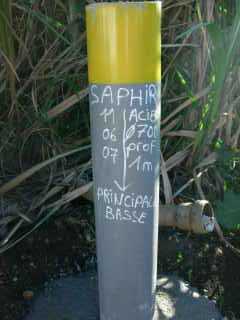 SAPHIR
11
06
07
700
prof
1m
PRINCIPAL
BASSE